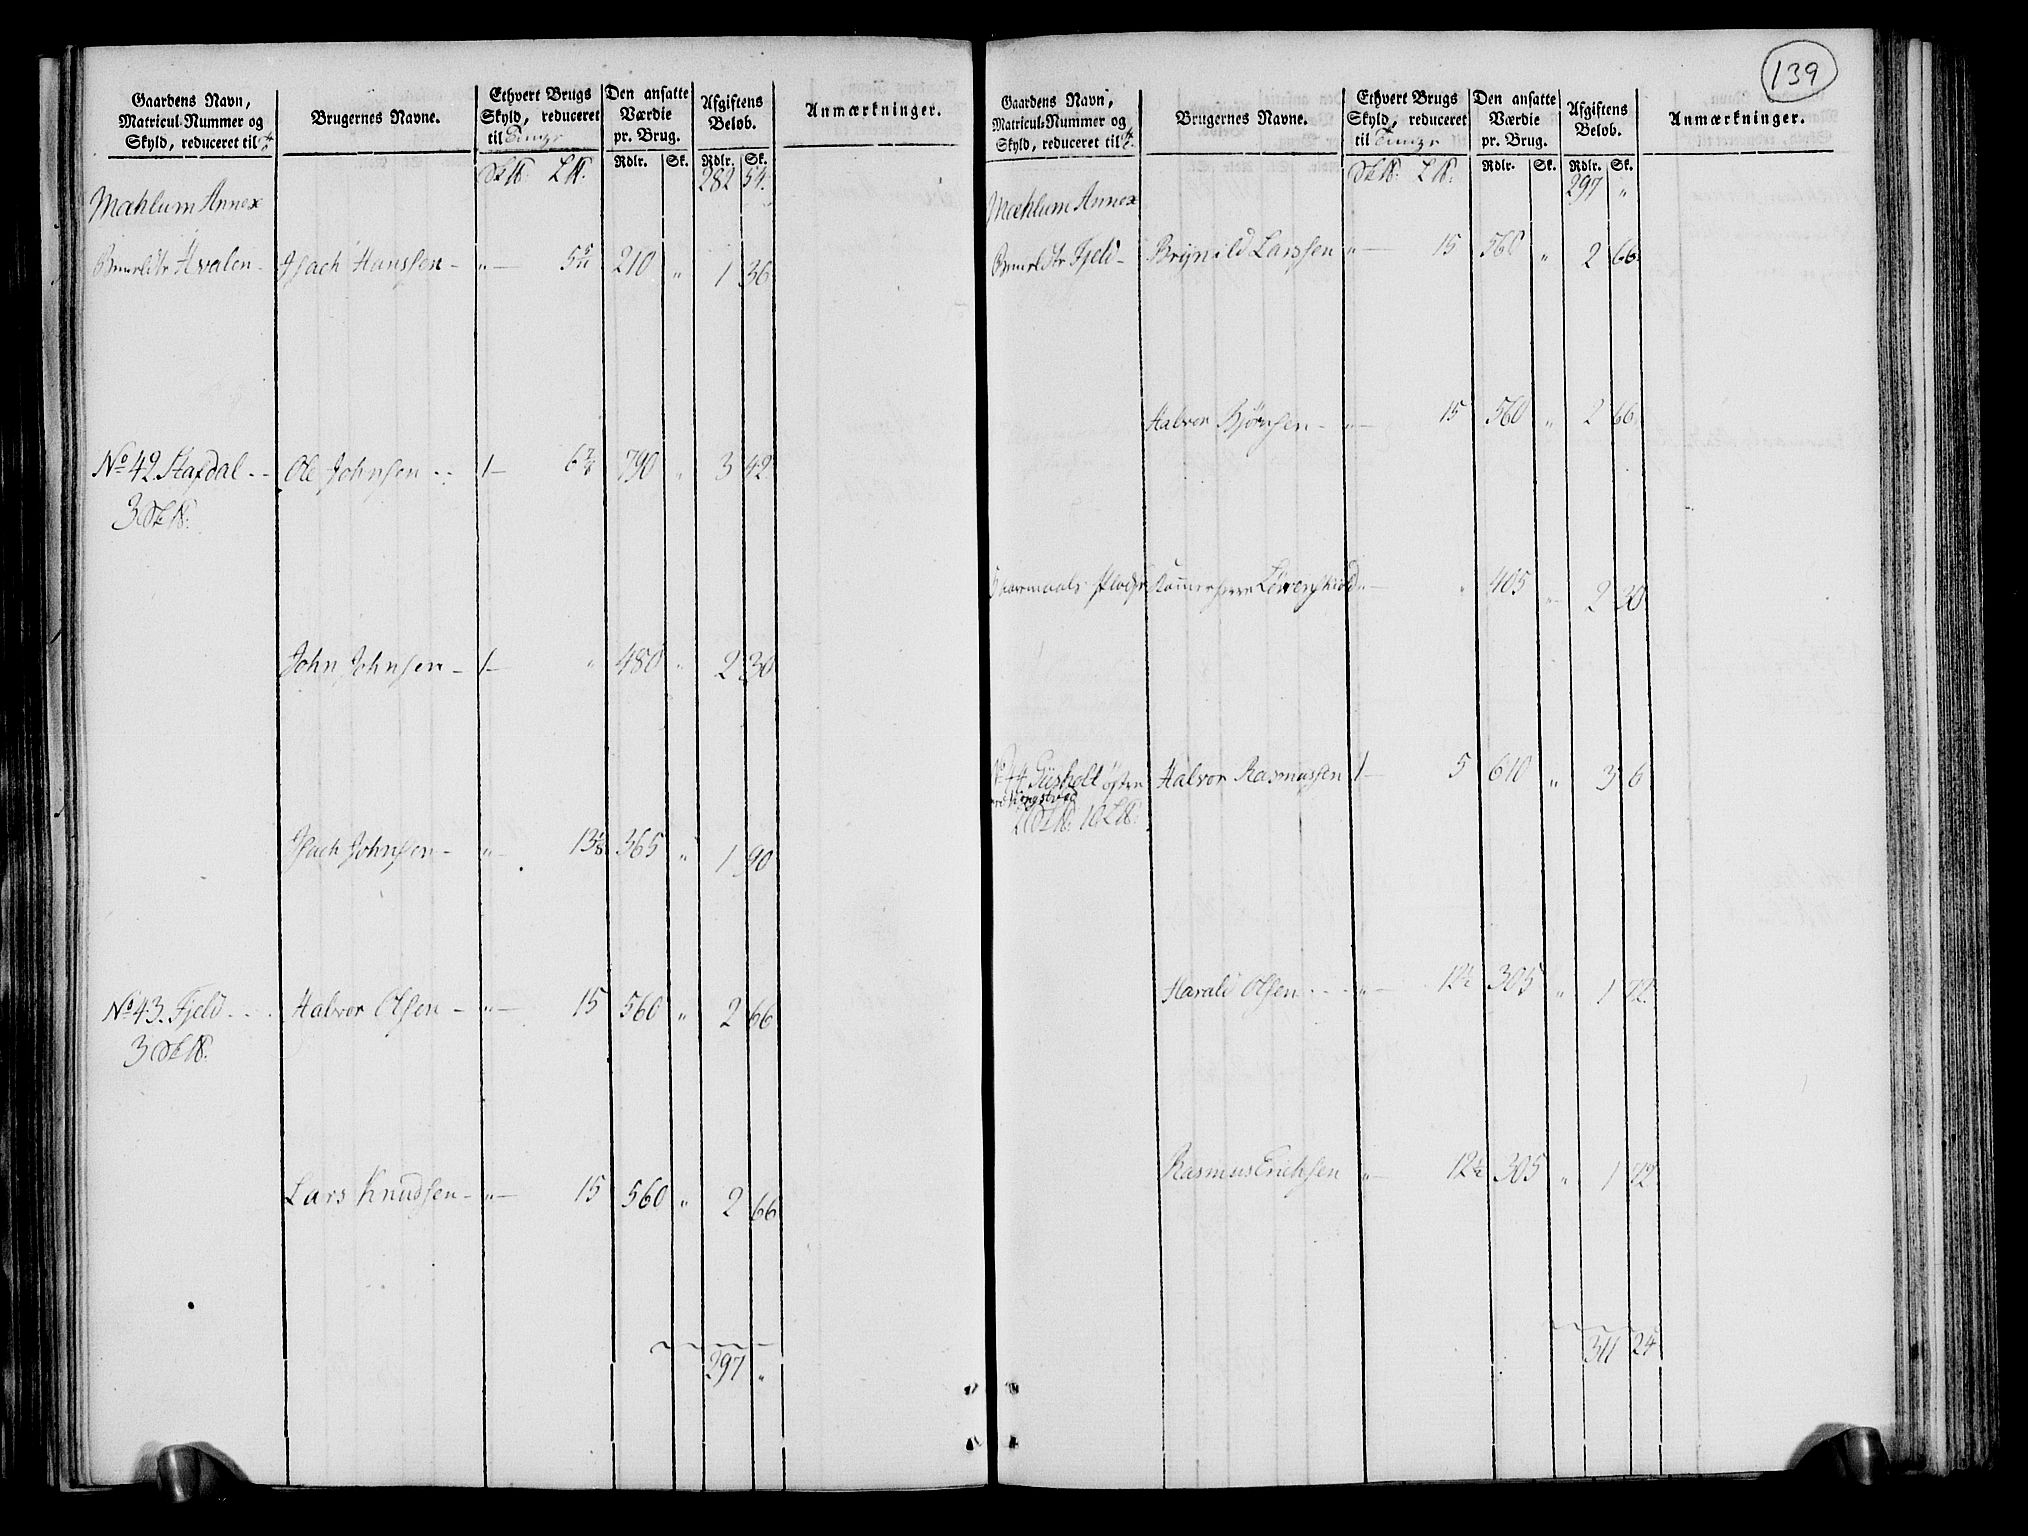 139
Gaardens Navn, Matricul-Nummer og Skyld, reduceret til Brugernes Navne. Ethvert Brugs Skyld, reduceret til Tunge Den ansatte Værdie pr. Brug. Afgiftens Beløb. Anmærkninger.
Rdlr. Sk. Rdlr. Sk.
282 54.
Mæhlum Annex
Hvalen - Isach Hanssen - " - 5 210 " 1 36
No 42. Stafdal - - Ole Johnsen - - 1 - 6 7/8 790 " 3 42
3
John Johnsen - 1 - " 480 " 2 30
Isach Johnsen - " - 13 1/8 365 " 1 90
No 43. Fjeld - - Halvor Olsen - " - 15 560 " 2 66
3
Lars Knudsen - " - 15 560 " 2 66
297 "
Gaardens Navn, Matricul-Nummer og Skyld, reduceret til Brugernes Navne. Ethvert Brugs Skyld, reduceret til Tunge Den ansatte Værdie pr. Brug. Afgiftens Beløb. Anmærkninger.
Rdlr. Sk. Rdlr. Sk.
297 "
Mæhlum Annex
Fjeld - Brynild Larssen " - 15 560 " 2 66
Halvor Bjørnsen - " - 15 560 " 2 66
Kammerherre Løvenskiold " - " 405 " 2 20
No 44 Giisholt østre Halvor Rasmussen 1 - 5 610 " 3 6
Harald Olsen - - - " - 12 1/2 305 " 1 42
Rasmus Erichsen " - 12 1/2 305 " 1 42
311 24